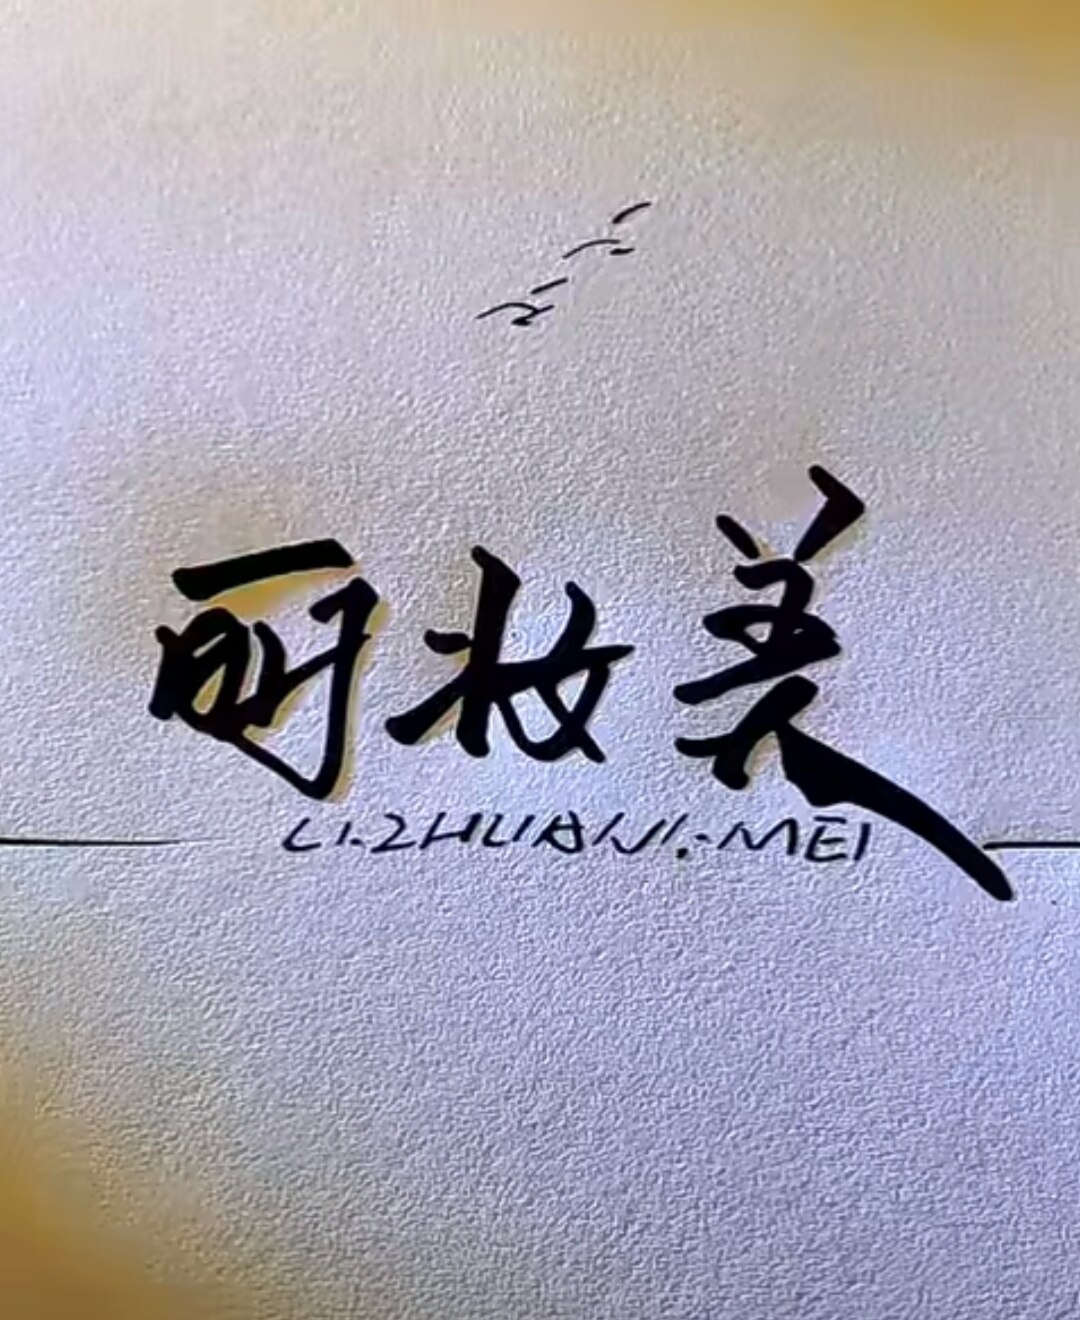 丽妆美
LI.ZHUANG.MEI